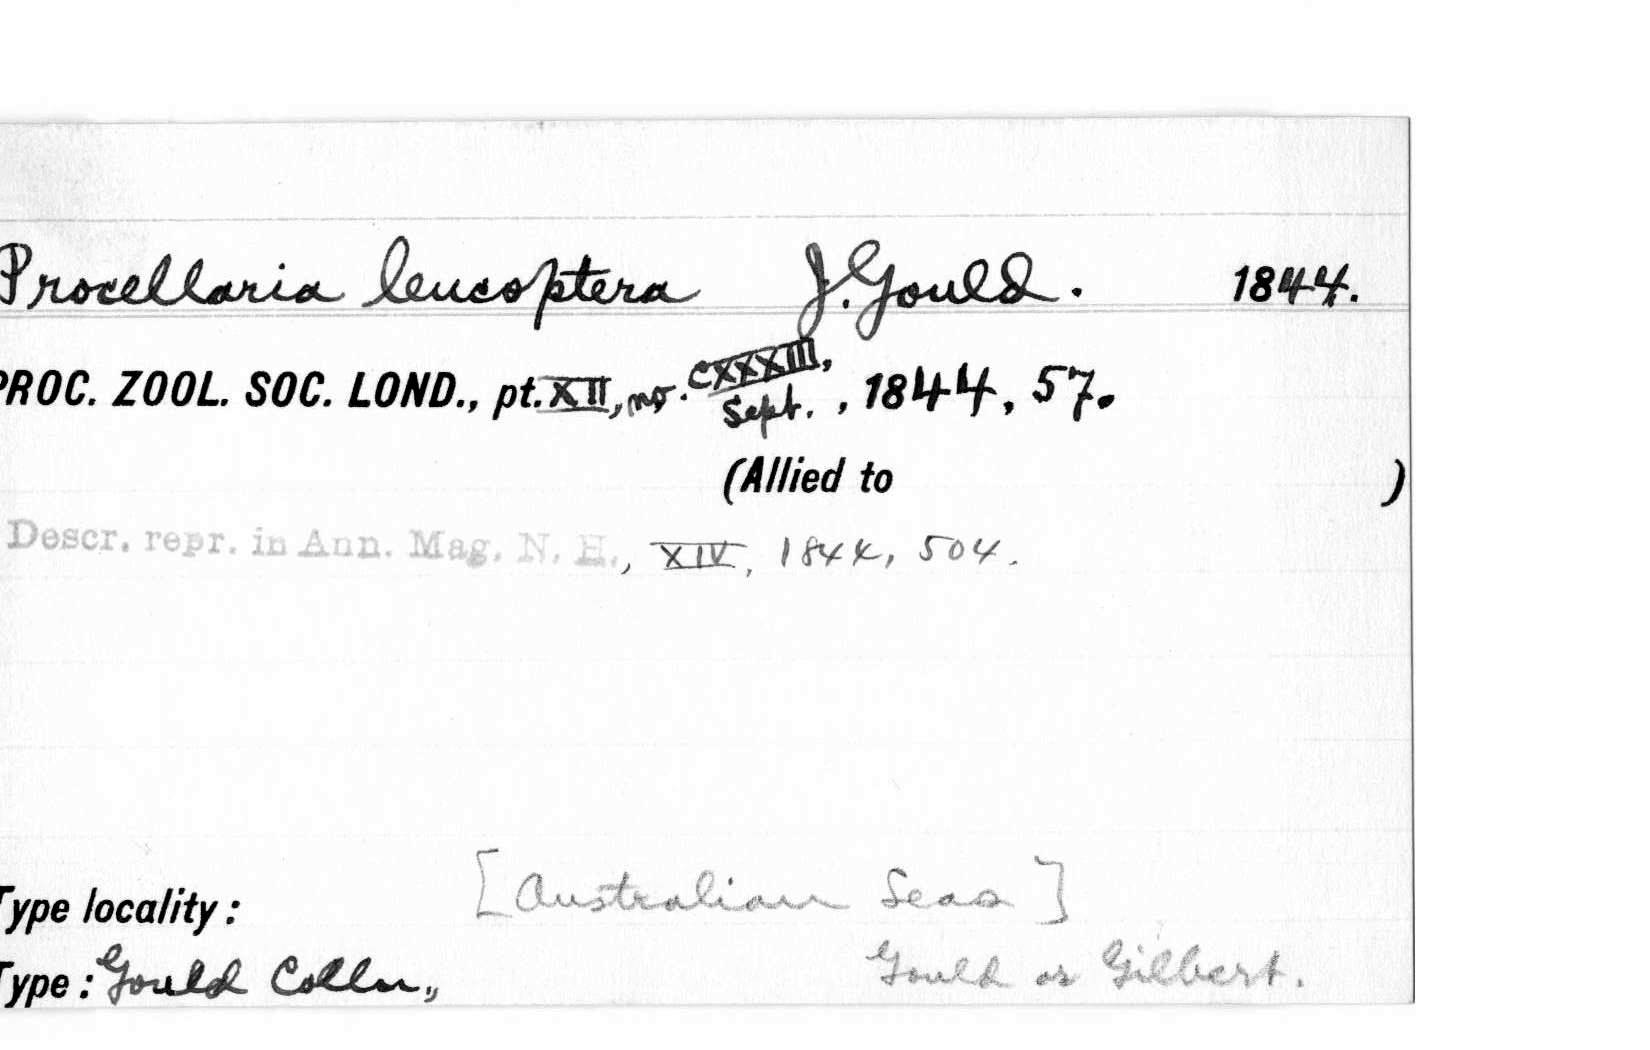 Procellaria leucoptera J. Gould. 1844.
PROC. ZOOL. SOC. LOND., pt. XII, no. CXXXIII, Sept., 1844, 57.
(Allied to )
Descr. repr. in Ann. Mag. N. H., XIV, 1844, 504.
Type locality: [Australian Seas]
Type: Gould Colln,, Gould or Gilbert.